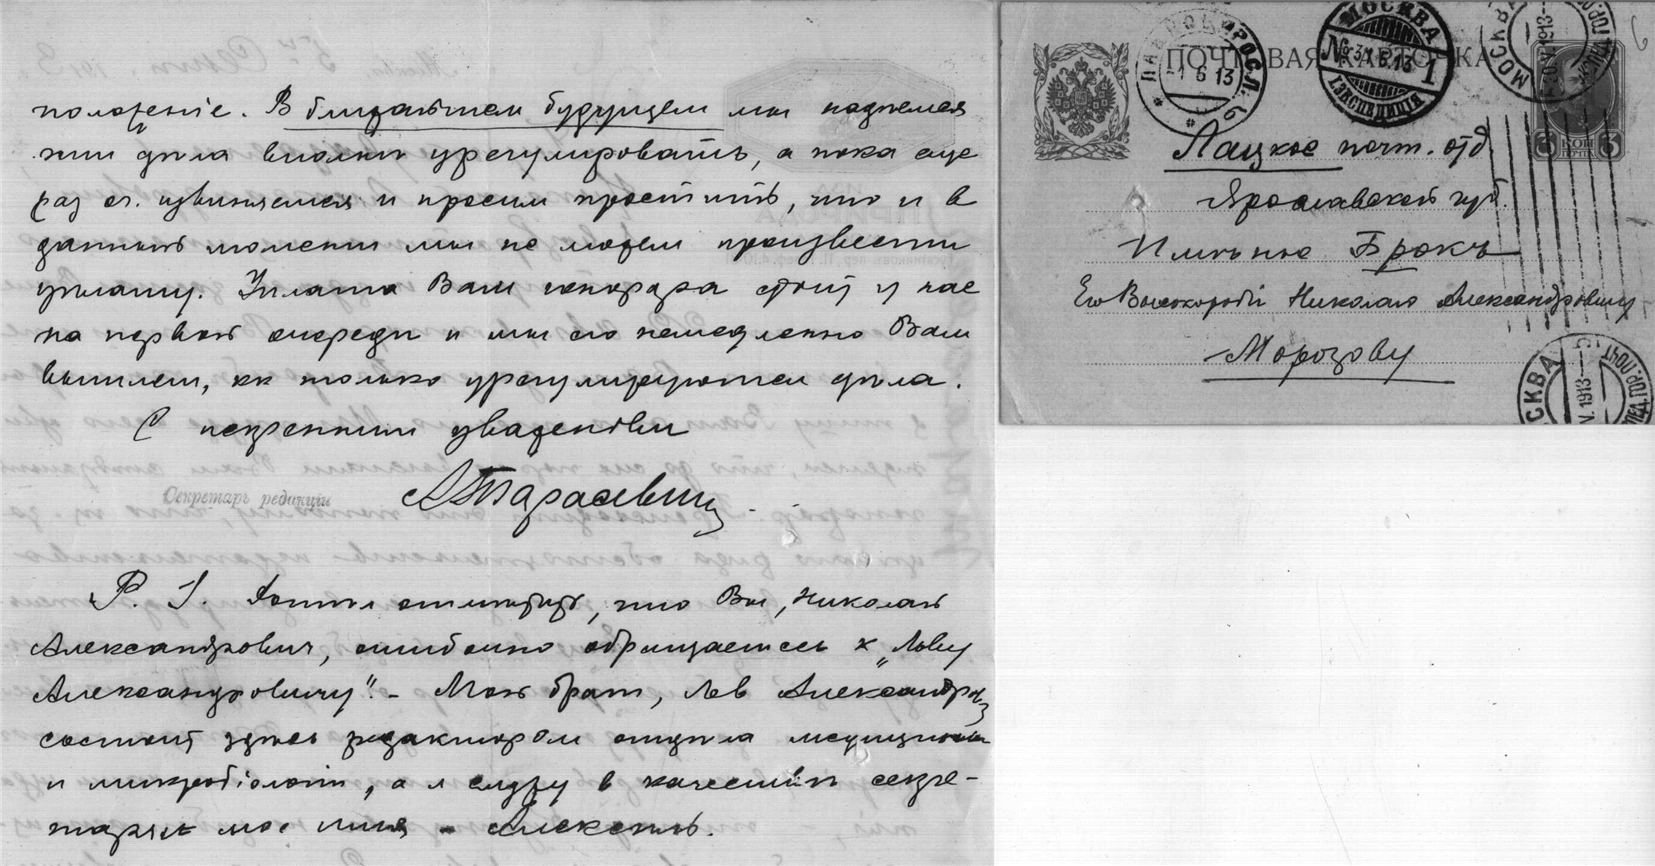 положеніе. В ближайшем будущем мы надѣемся
эти дѣла вполнѣ урегулировать, а пока еще
раз оч. извиняемся и просим простить, что и в
данный момент мы не можем произвести
уплату. Уплата Вам гонорара стоит у нас
на первой очереди и мы его немедленно Вам
вышлем, кк только урегулируются дѣла.
С искренним уваженіем
Секретарь редакціи
АТарасевич
P. S. Хотѣл отмѣтить, что Вы, Николай
Александрович, ошибочно обращаетесь к „Льву
Александровичу". - Мой брат, Лев Александр.
состоит здѣсь редактором отдѣла медицины
и микробіологіи, а я служу в качествѣ секре-
таря мое имя - Алексѣй.
ПОЧТОВАЯ КАРТОЧКА
1 6 13
МОСКВА
№31.5.13 1
1. ЭКСПЕДИЦІЯ
МОСКВА
3 КОП 3
Лацкое почт. отд
Ярославской губ.
Имѣніе Брокъ
Его Высокородію Николаю Александровичу
Морозову
МОСКВА
1913